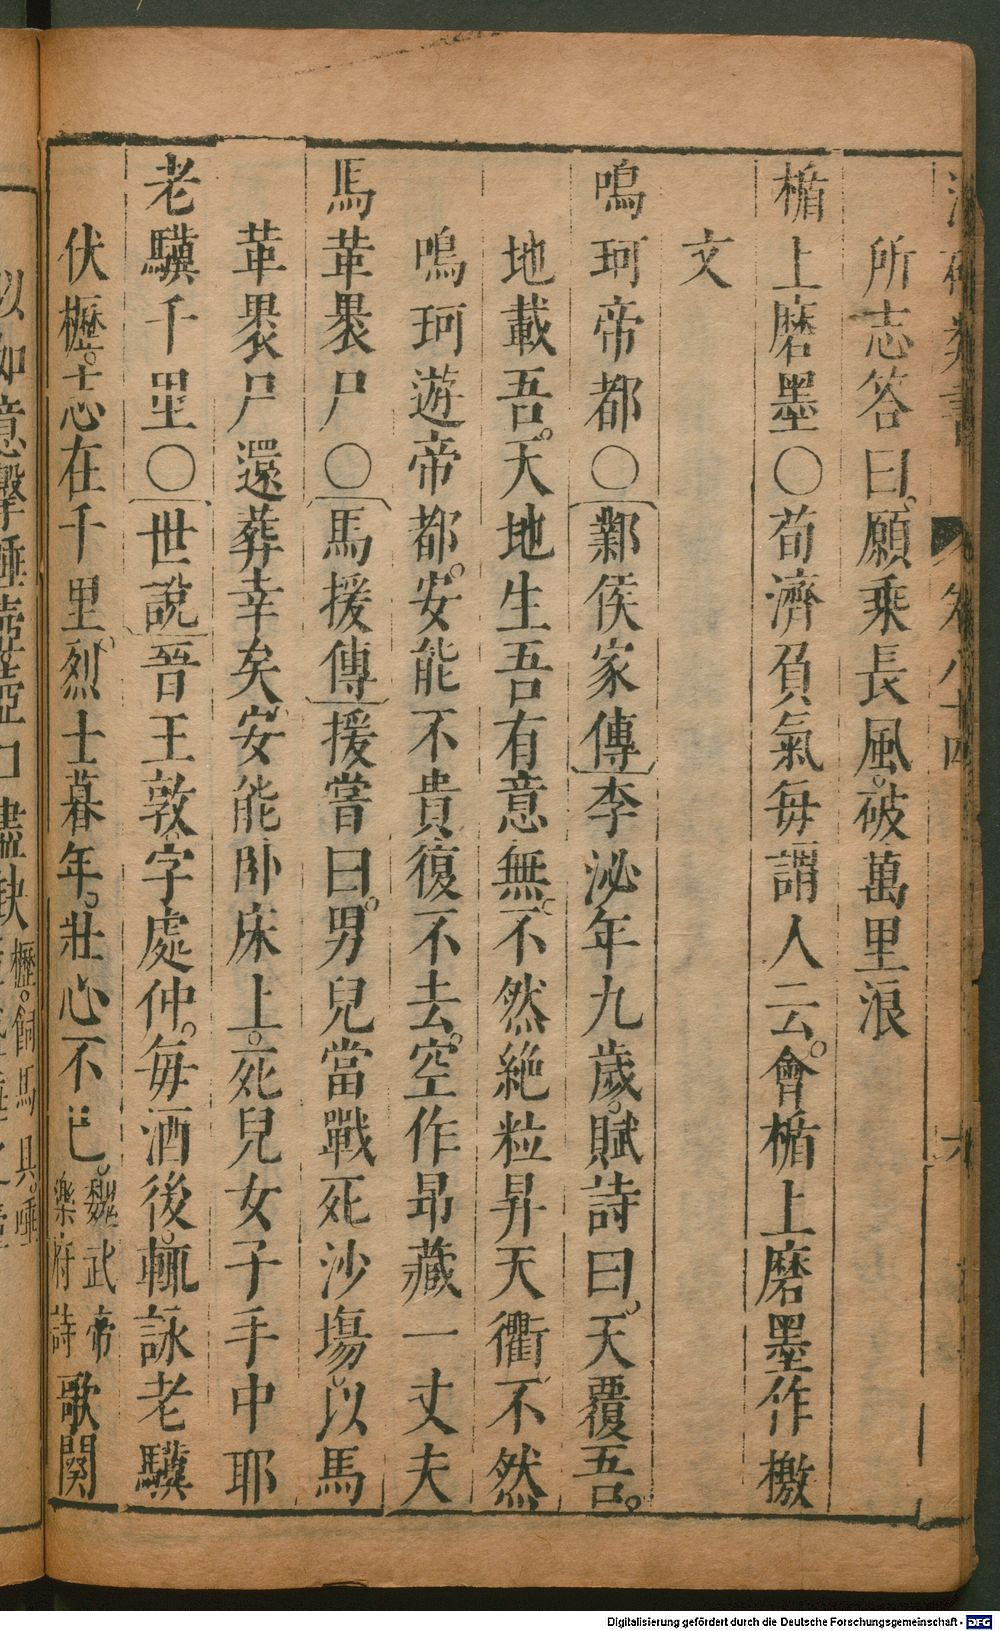 所志答曰。願乘長風。破萬里浪
楯上磨墨〇荀濟負氣每謂人云。會楯上磨墨作檄
文
鳴珂帝都〇鄴侯家傳李泌年九歲。賦詩曰。天覆吾。
地載吾。天地生吾有意無。不然絶粒昇天衢。不然
鳴珂遊帝都。安能不貴復不去。空作昻藏一丈夫
馬革褁尸〇馬援傳援嘗曰。男兒當戰死沙場。以馬
革褁尸還葬幸矣。安能卧床上。死兒女子手中耶
老驥千里〇世說晉王敦。字處仲。每酒後。輒詠老驥
伏櫪。志在千里。烈士暮年。壯心不已。魏武帝樂府詩歌闋
以如意擊唾壺。壺口盡缺櫪。飼馬具。唾
Digitalisierung gefördert durch die Deutsche Forschungsgemeinschaft - DFG